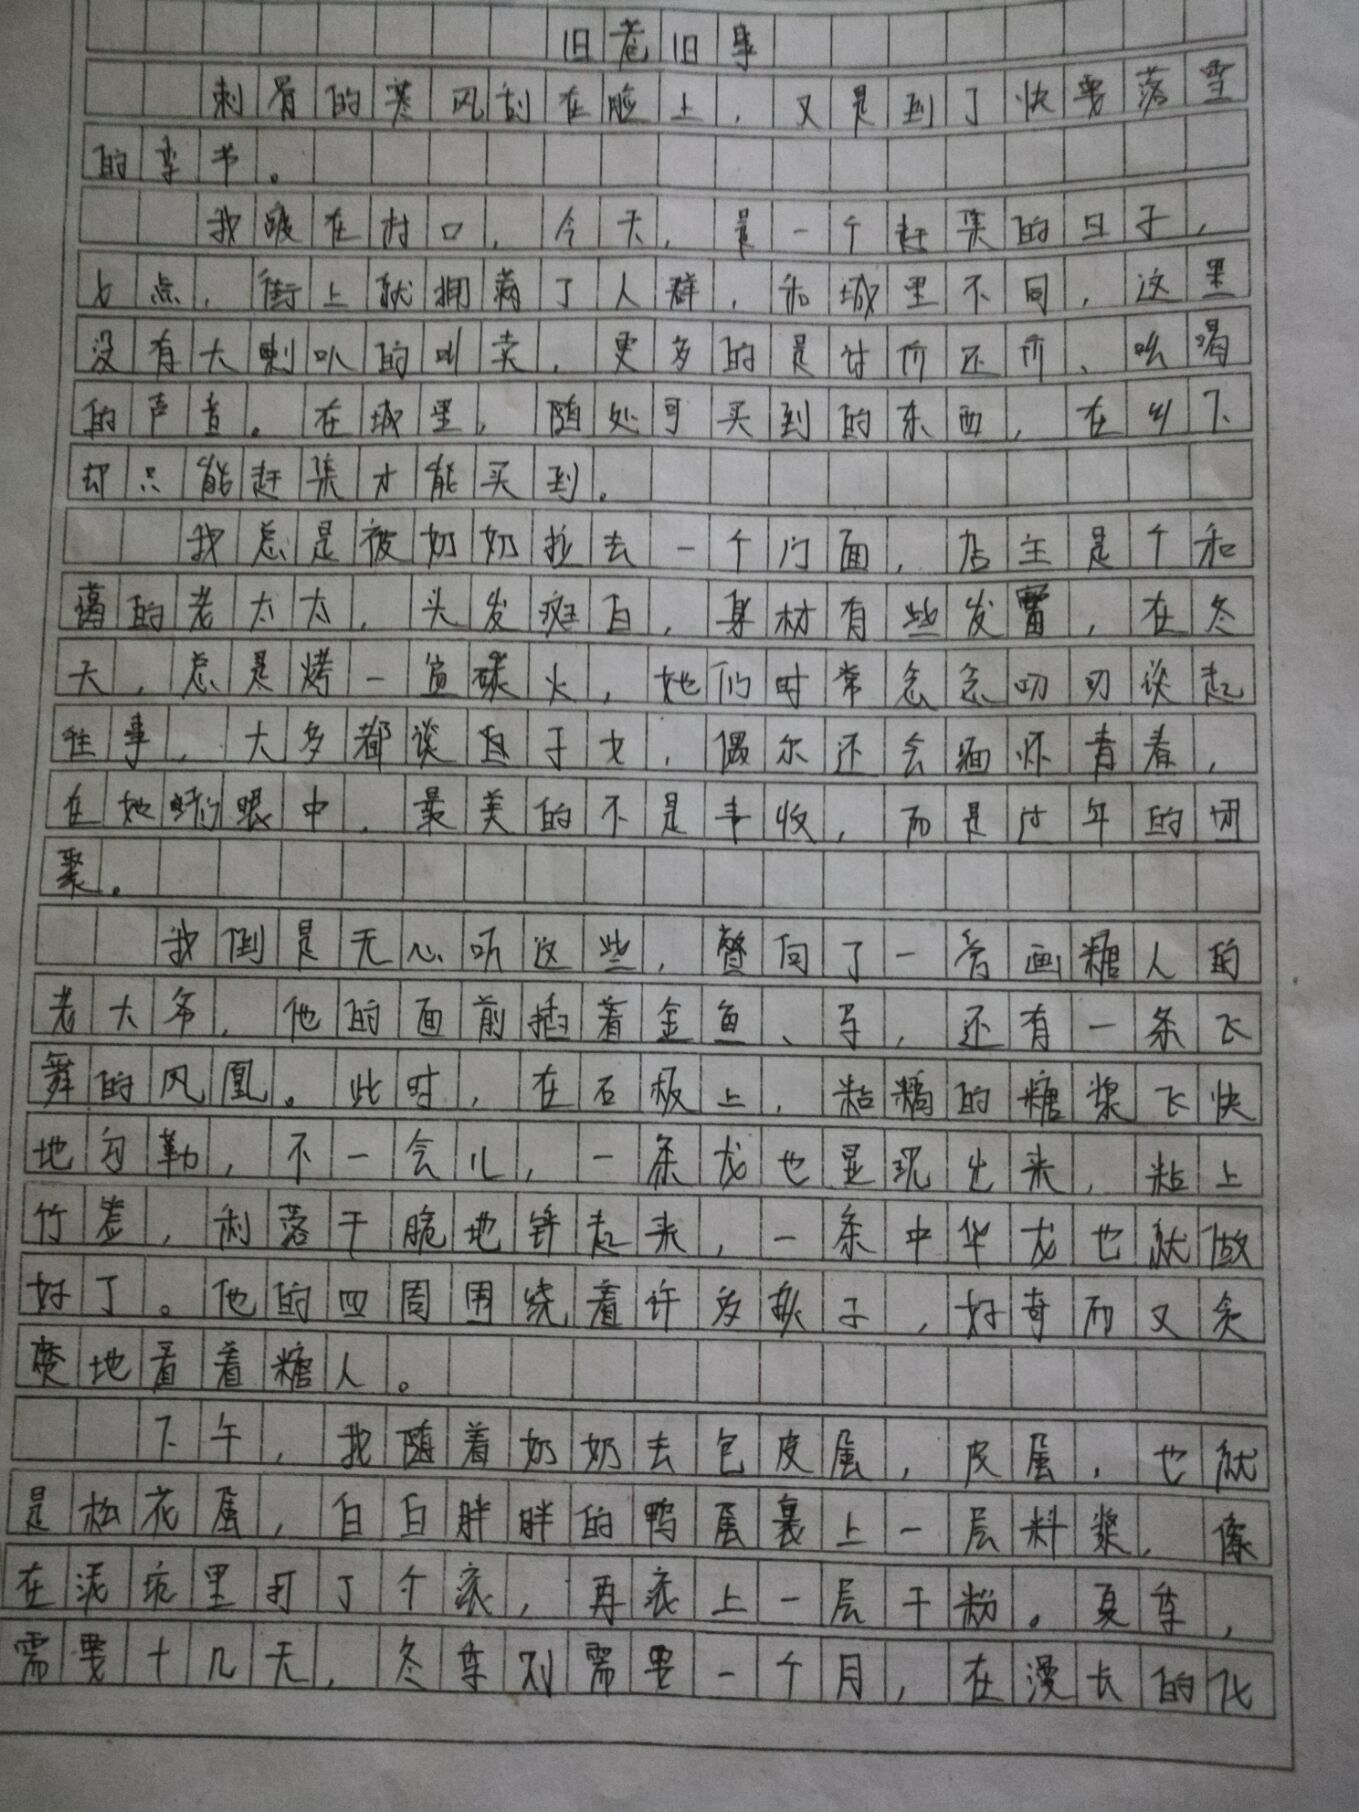 旧巷旧事
刺骨的寒风刮在脸上，又是到了快要落雪
的季节。
我蹲在村口，今天，是一个赶集的日子，
七点，街上就拥满了人群，和城里不同，这里
没有大喇叭的叫卖，更多的是讨价还价、吆喝
的声音。在城里，随处可买到的东西，在乡下
却只能赶集才能买到。
我总是被奶奶拉去一个门面，店主是个和
蔼的老太太，头发斑白，身材有些发富，在冬
天，总是烤一盆碳火，她们时常念念叨叨谈起
往事，大多都谈自子女，偶尔还会缅怀青春，
在她们眼中，最美的不是丰收，而是过年的团
聚。
我倒是无心听这些，瞥向了一旁画糖人的
老大爷，他的面前插着金鱼、马，还有一条飞
舞的凤凰。此时，在石板上，粘稠的糖浆飞快
地勾勒，不一会儿，一条龙也显现出来，粘上
竹签，利落干脆地铲起来，一条中华龙也就做
好了。他的四周围绕着许多孩子，好奇而又贪
婪地看着糖人。
下午，我随着奶奶去包皮蛋，皮蛋，也就
是松花蛋，白白胖胖的鸭蛋裹上一层料浆，像
在泥坑里打了个滚，再滚上一层干粉。夏季，
需要十几天，冬季则需要一个月，在漫长的化